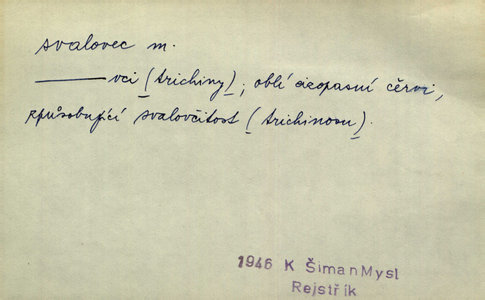 svalovec m.
——— vci (trichiny); oblí cizopasní červi,
způsobující svalovčitost (trichinosu).
1946 K ŠimanMysl
Rejstřík